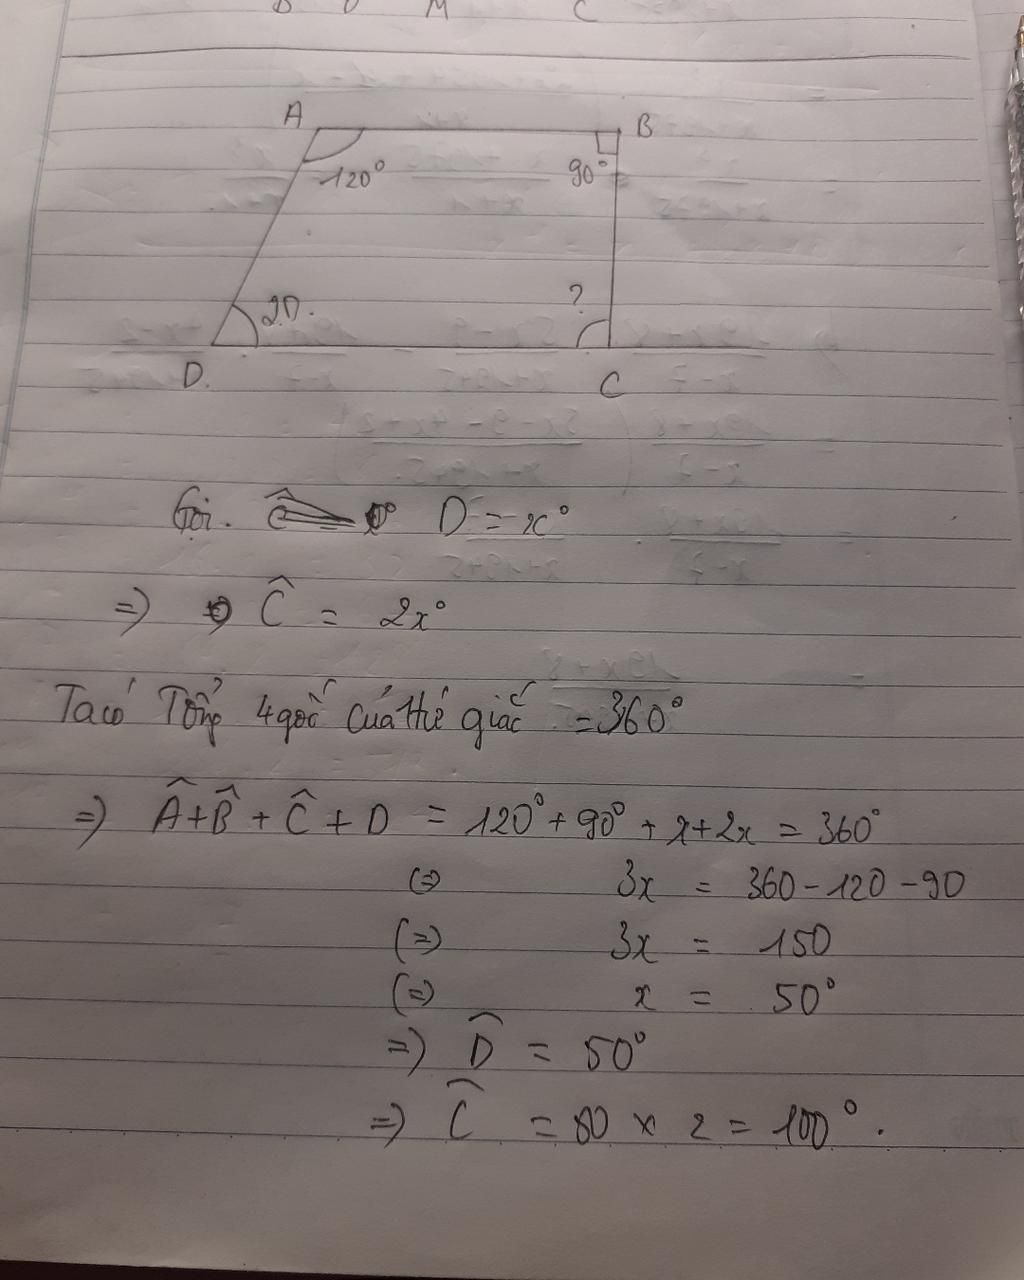 M C
A B
120° 90°
2D. ?
D. C
Gọi. D = x°
=> Ĉ = 2x°
Ta có Tổng 4 góc của tứ giác = 360°
=> Â + B̂ + Ĉ + D = 120° + 90° + x + 2x = 360°
<=> 3x = 360 - 120 - 90
<=> 3x = 150
<=> x = 50°
=> D̂ = 50°
=> Ĉ = 50 x 2 = 100°.